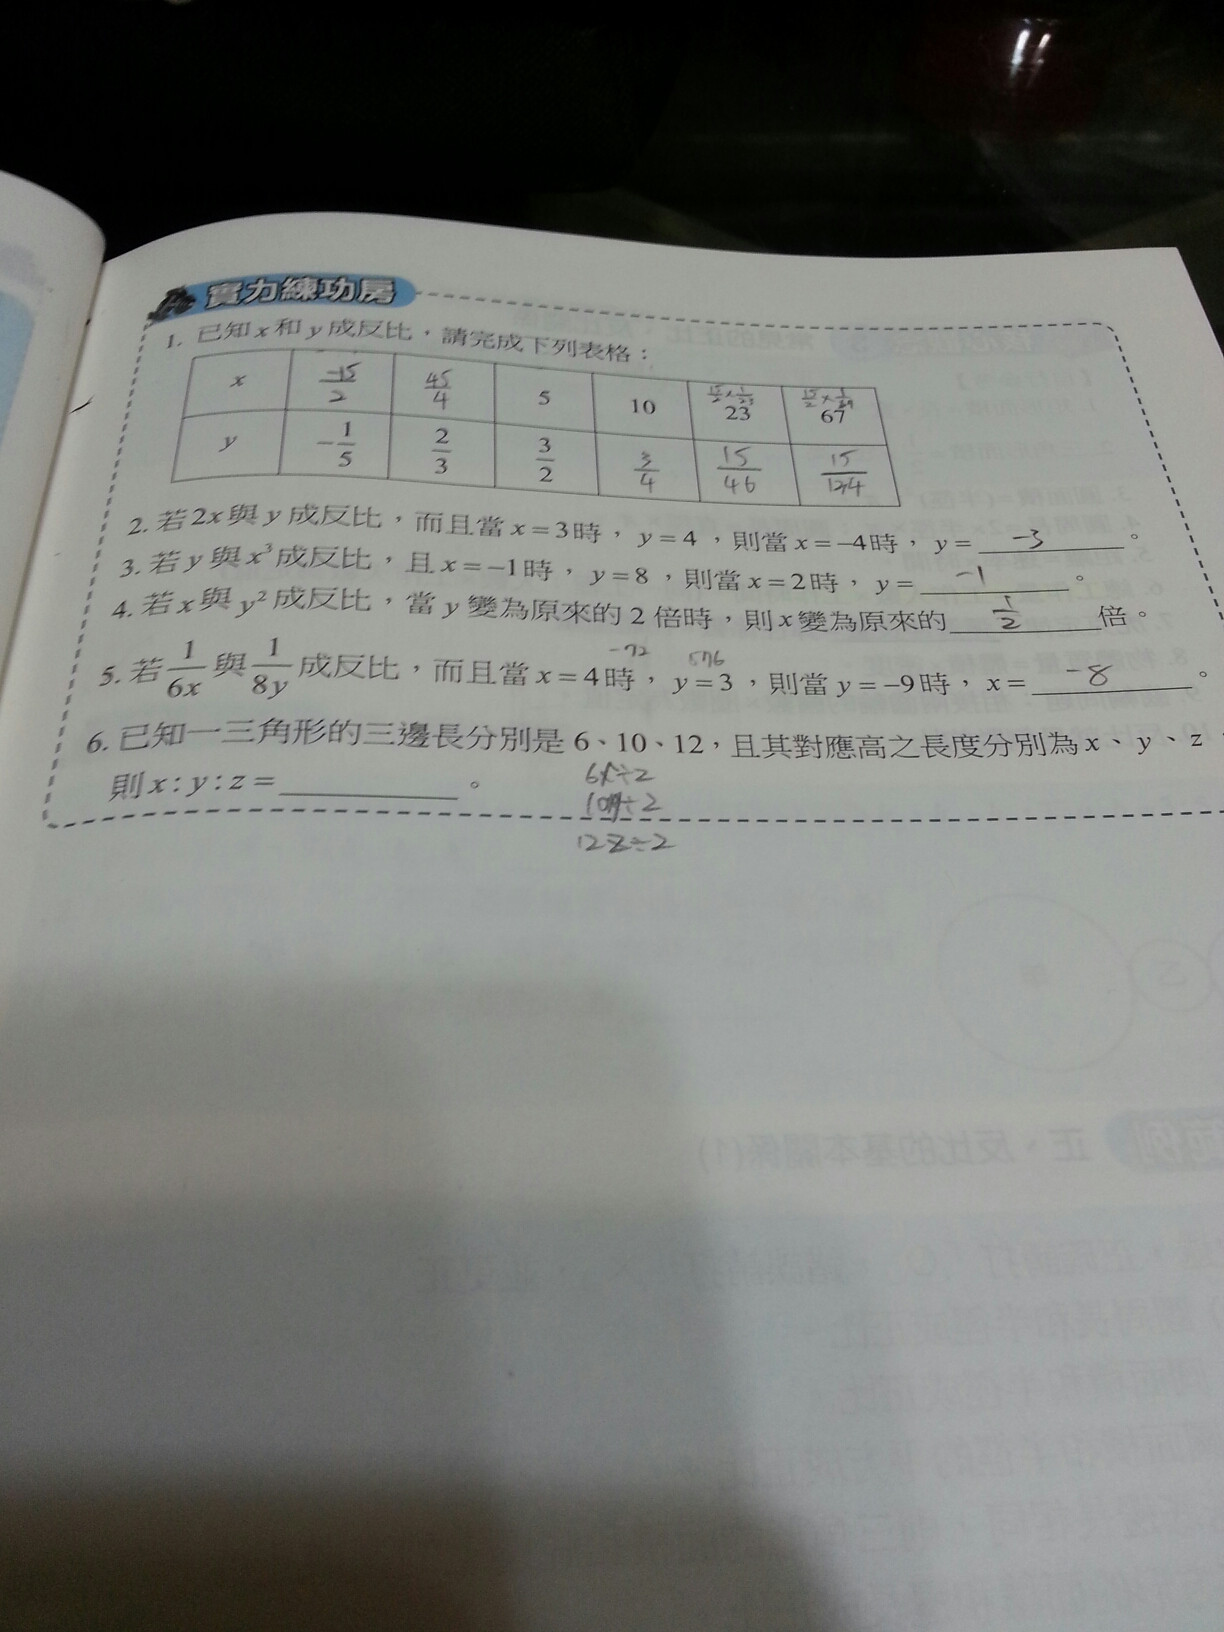 實力練功房
1. 已知 x 和 y 成反比，請完成下列表格：
x -15/2 45/4 5 10 23 67
y -1/5 2/3 3/2 3/4 15/46 15/134
2. 若 2x 與 y 成反比，而且當 x = 3 時，y = 4，則當 x = -4 時，y = -3。
3. 若 y 與 x³ 成反比，且 x = -1 時，y = 8，則當 x = 2 時，y = -1。
4. 若 x 與 y² 成反比，當 y 變為原來的 2 倍時，則 x 變為原來的 1/2 倍。
-72 576
5. 若 1/6x 與 1/8y 成反比，而且當 x = 4 時，y = 3，則當 y = -9 時，x = -8。
6. 已知一三角形的三邊長分別是 6、10、12，且其對應高之長度分別為 x、y、z，
則 x : y : z = ＿＿＿＿。
6x÷2
10y÷2
12z÷2